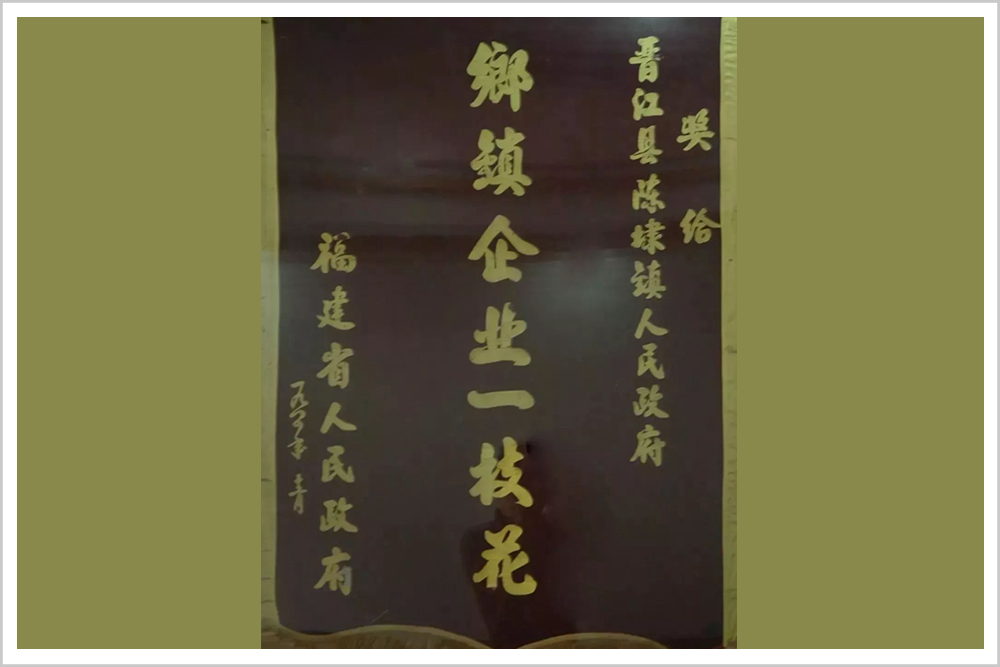 奖给
晋江县陈埭镇人民政府
鄉鎮企业一枝花
福建省人民政府